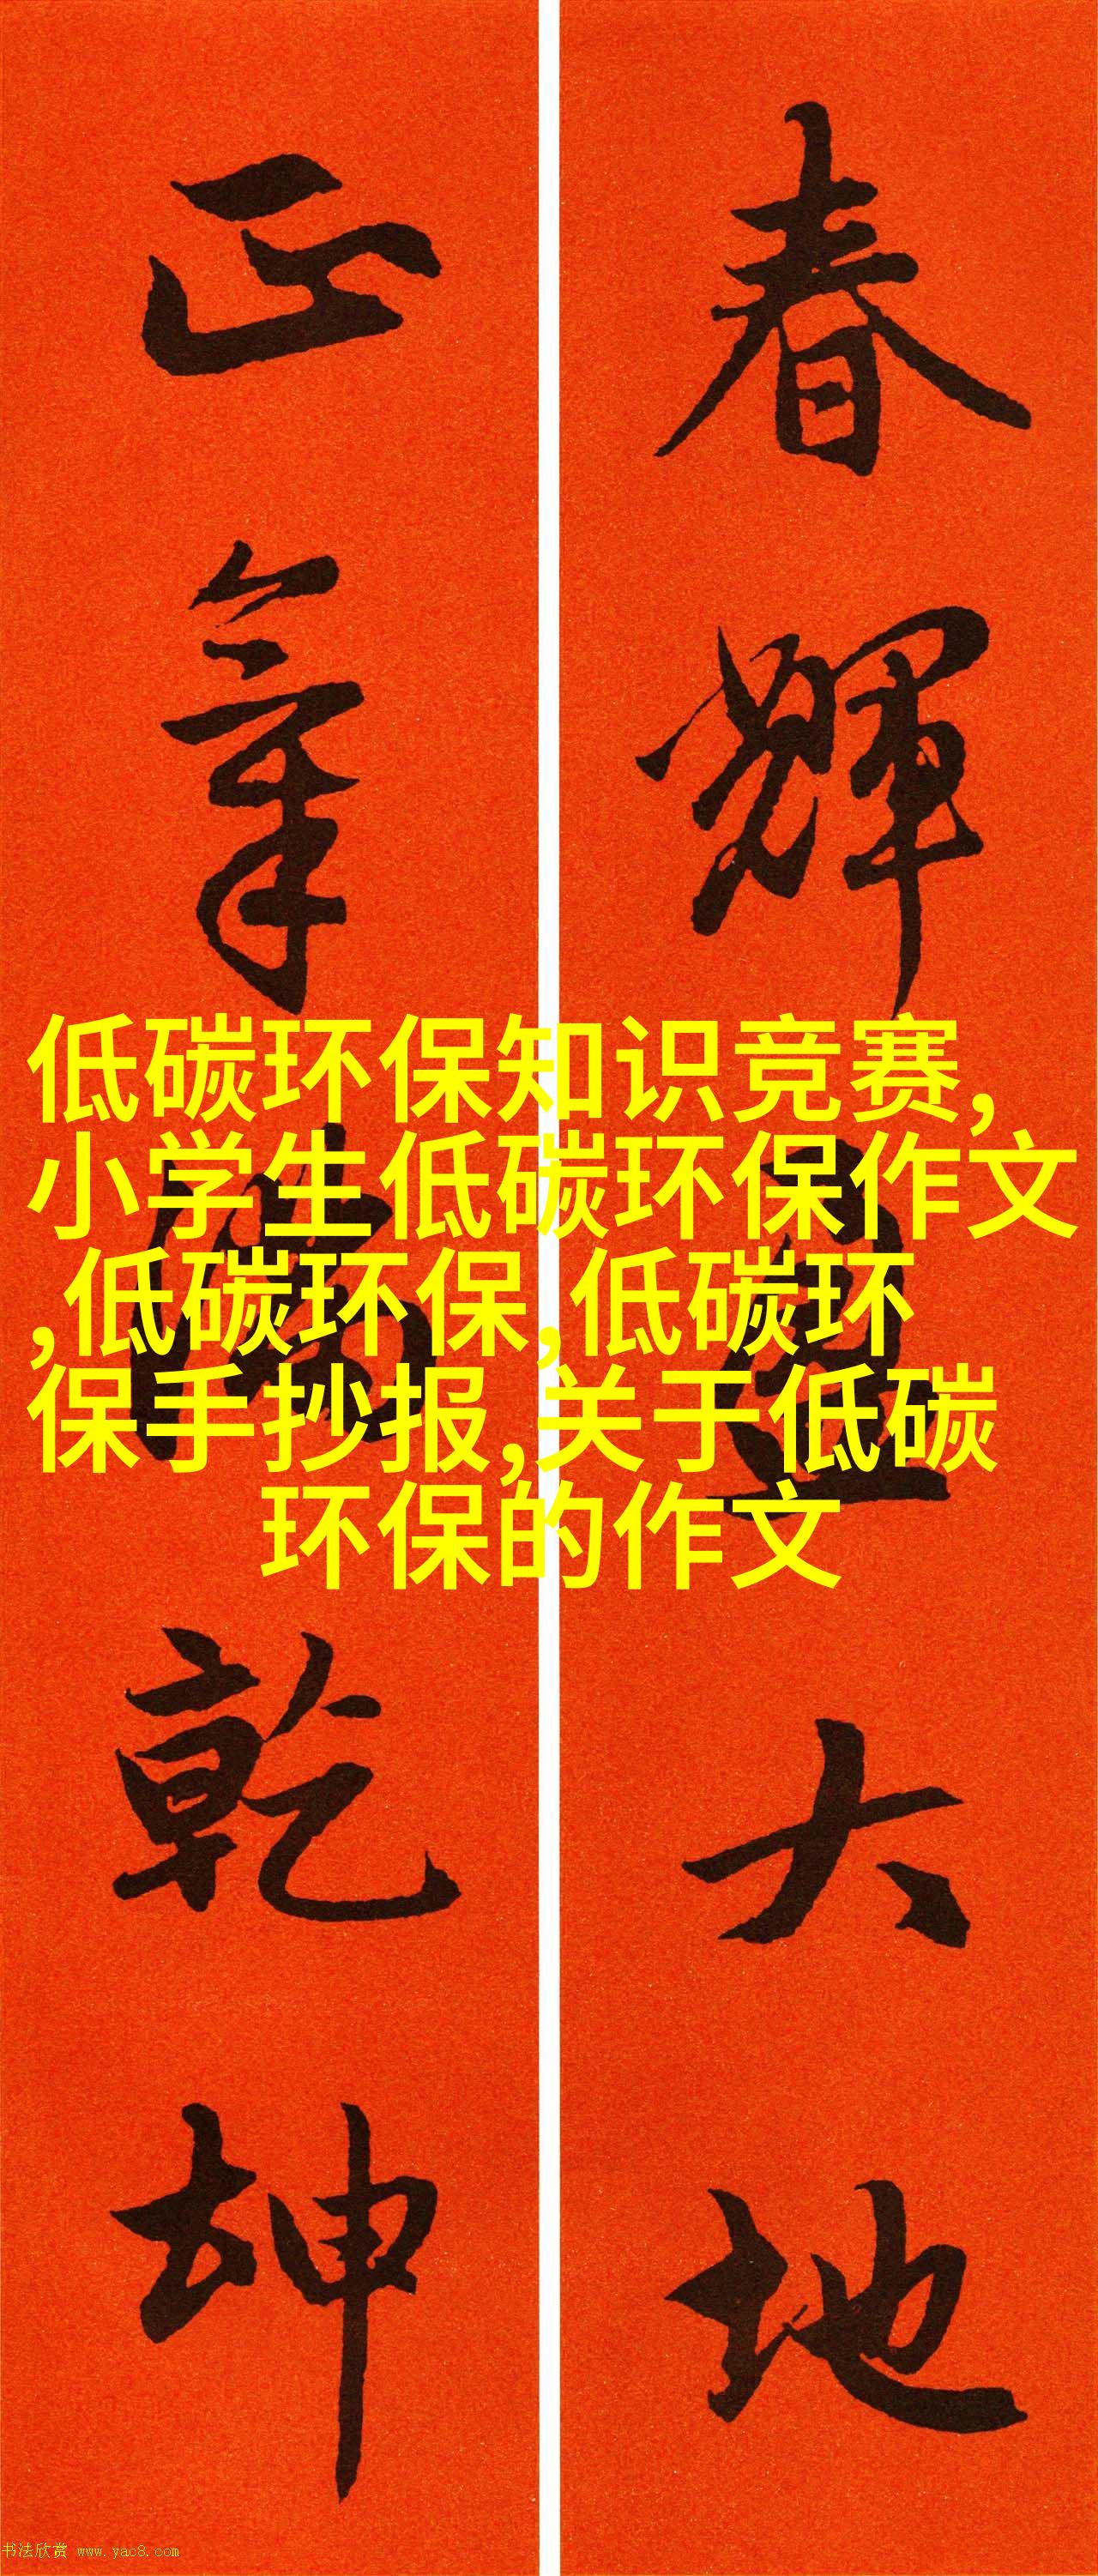 春輝盈大地
正氣滿乾坤
低碳环保知识竞赛,
小学生低碳环保作文
,低碳环保,低碳环
保手抄报,关于低碳
环保的作文
书法欣赏 www.yac8.com